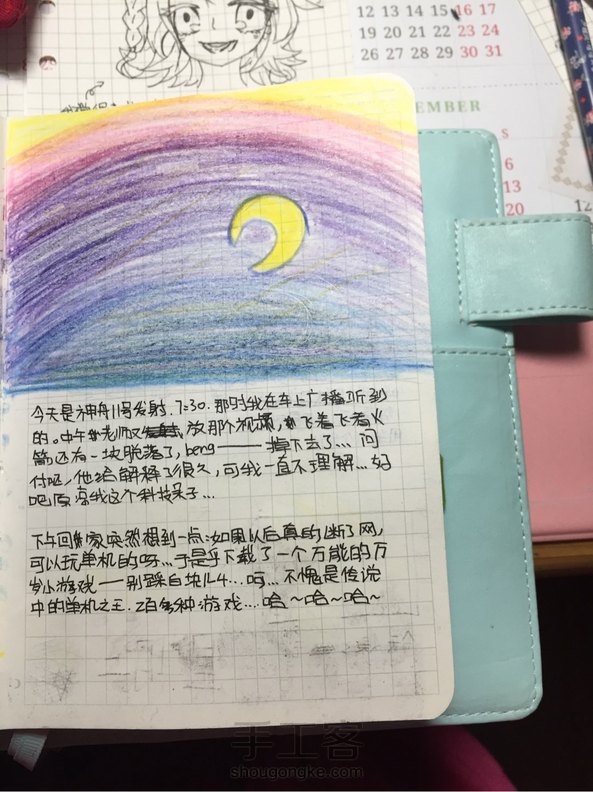 12 13 14 15 16 17
19 20 21 22 23 24
26 27 28 29 30 31
EMBER
S
6
13
20
12
今天是神舟11号发射.7:30.那时我在车上广播听到
的。中午老师又放那个视频,飞着飞着火
箭还有一块脱落了,beng——掉下去了...问
付吧,他给解释了很久,可我一直不理解...好
吧原谅我这个科技呆子...
下午回家突然想到一点:如果以后真的断了网,
可以玩单机的呀...于是乎下载了一个万能的万
岁小游戏——别踩白块儿4...呵...不愧是传说
中的单机之王.2百多种游戏...哈~哈~哈~
手工客
shougongke.com